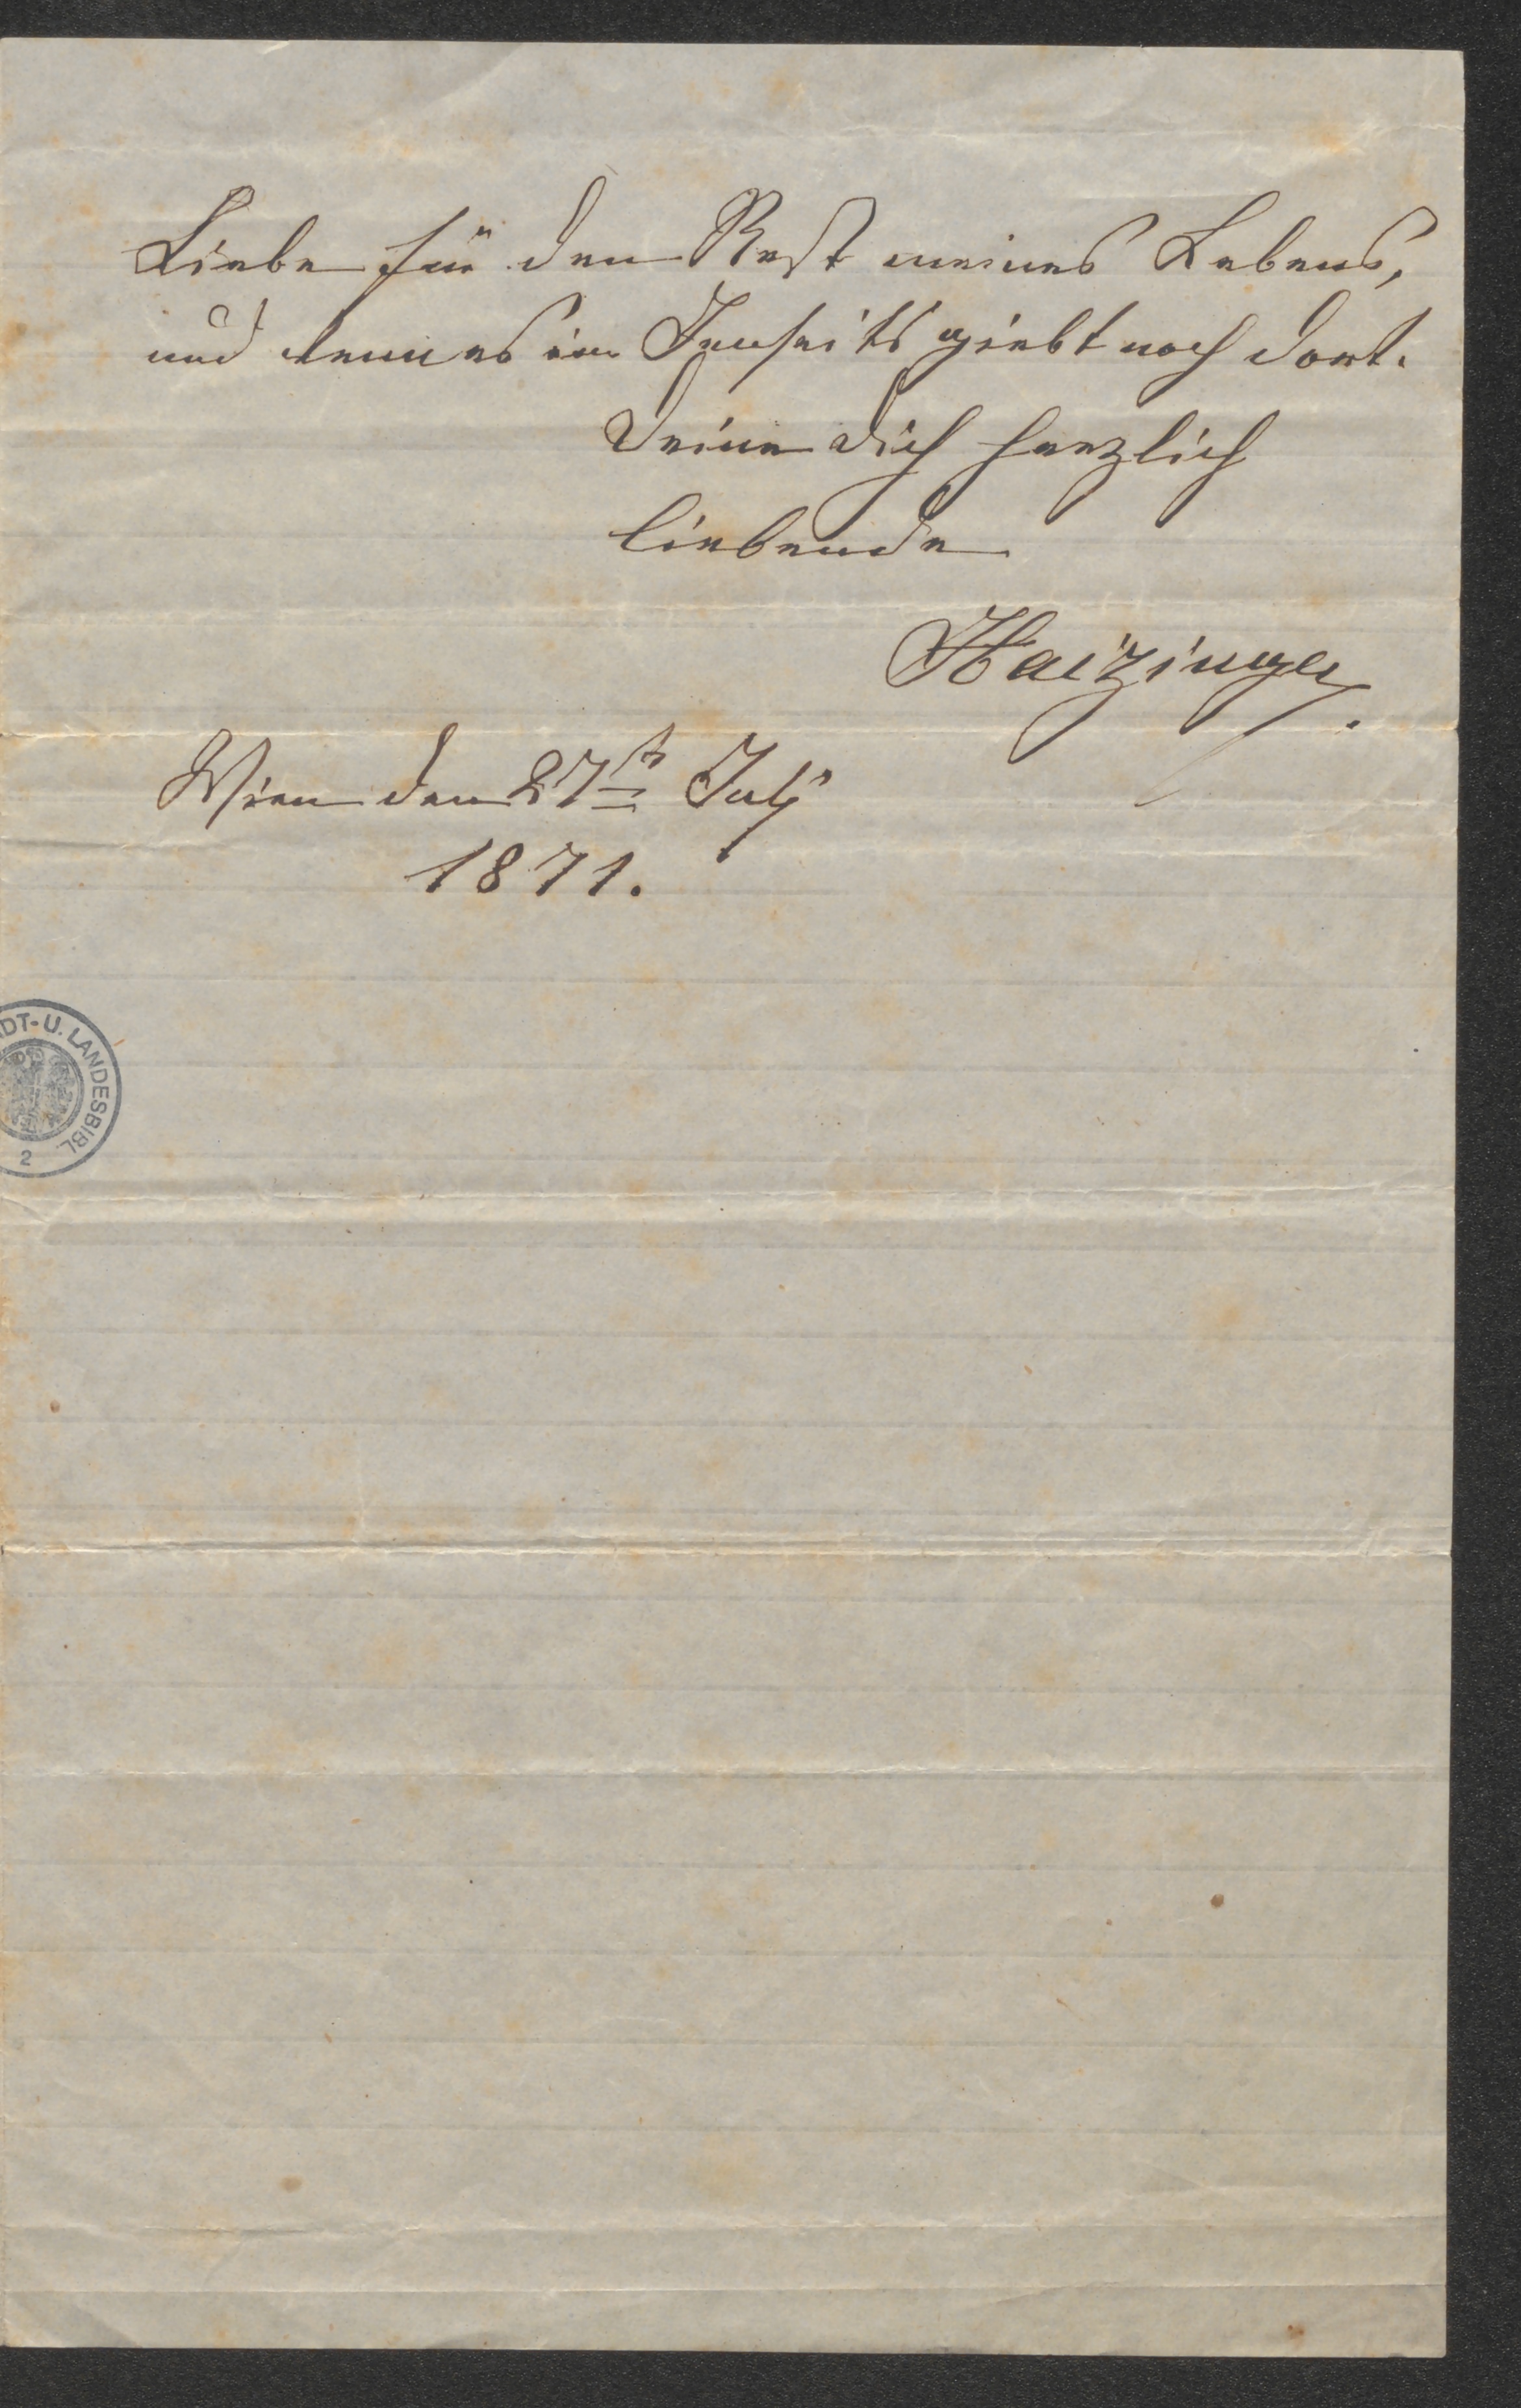 Liebe für den Rest meines Lebens,
und wenn es ein Jenseits giebt noch dort.
Deine Dich herzlich
liebende
Haizinger.
Wien den 27t July
1871.
DT-U. LANDESBIBL.
2